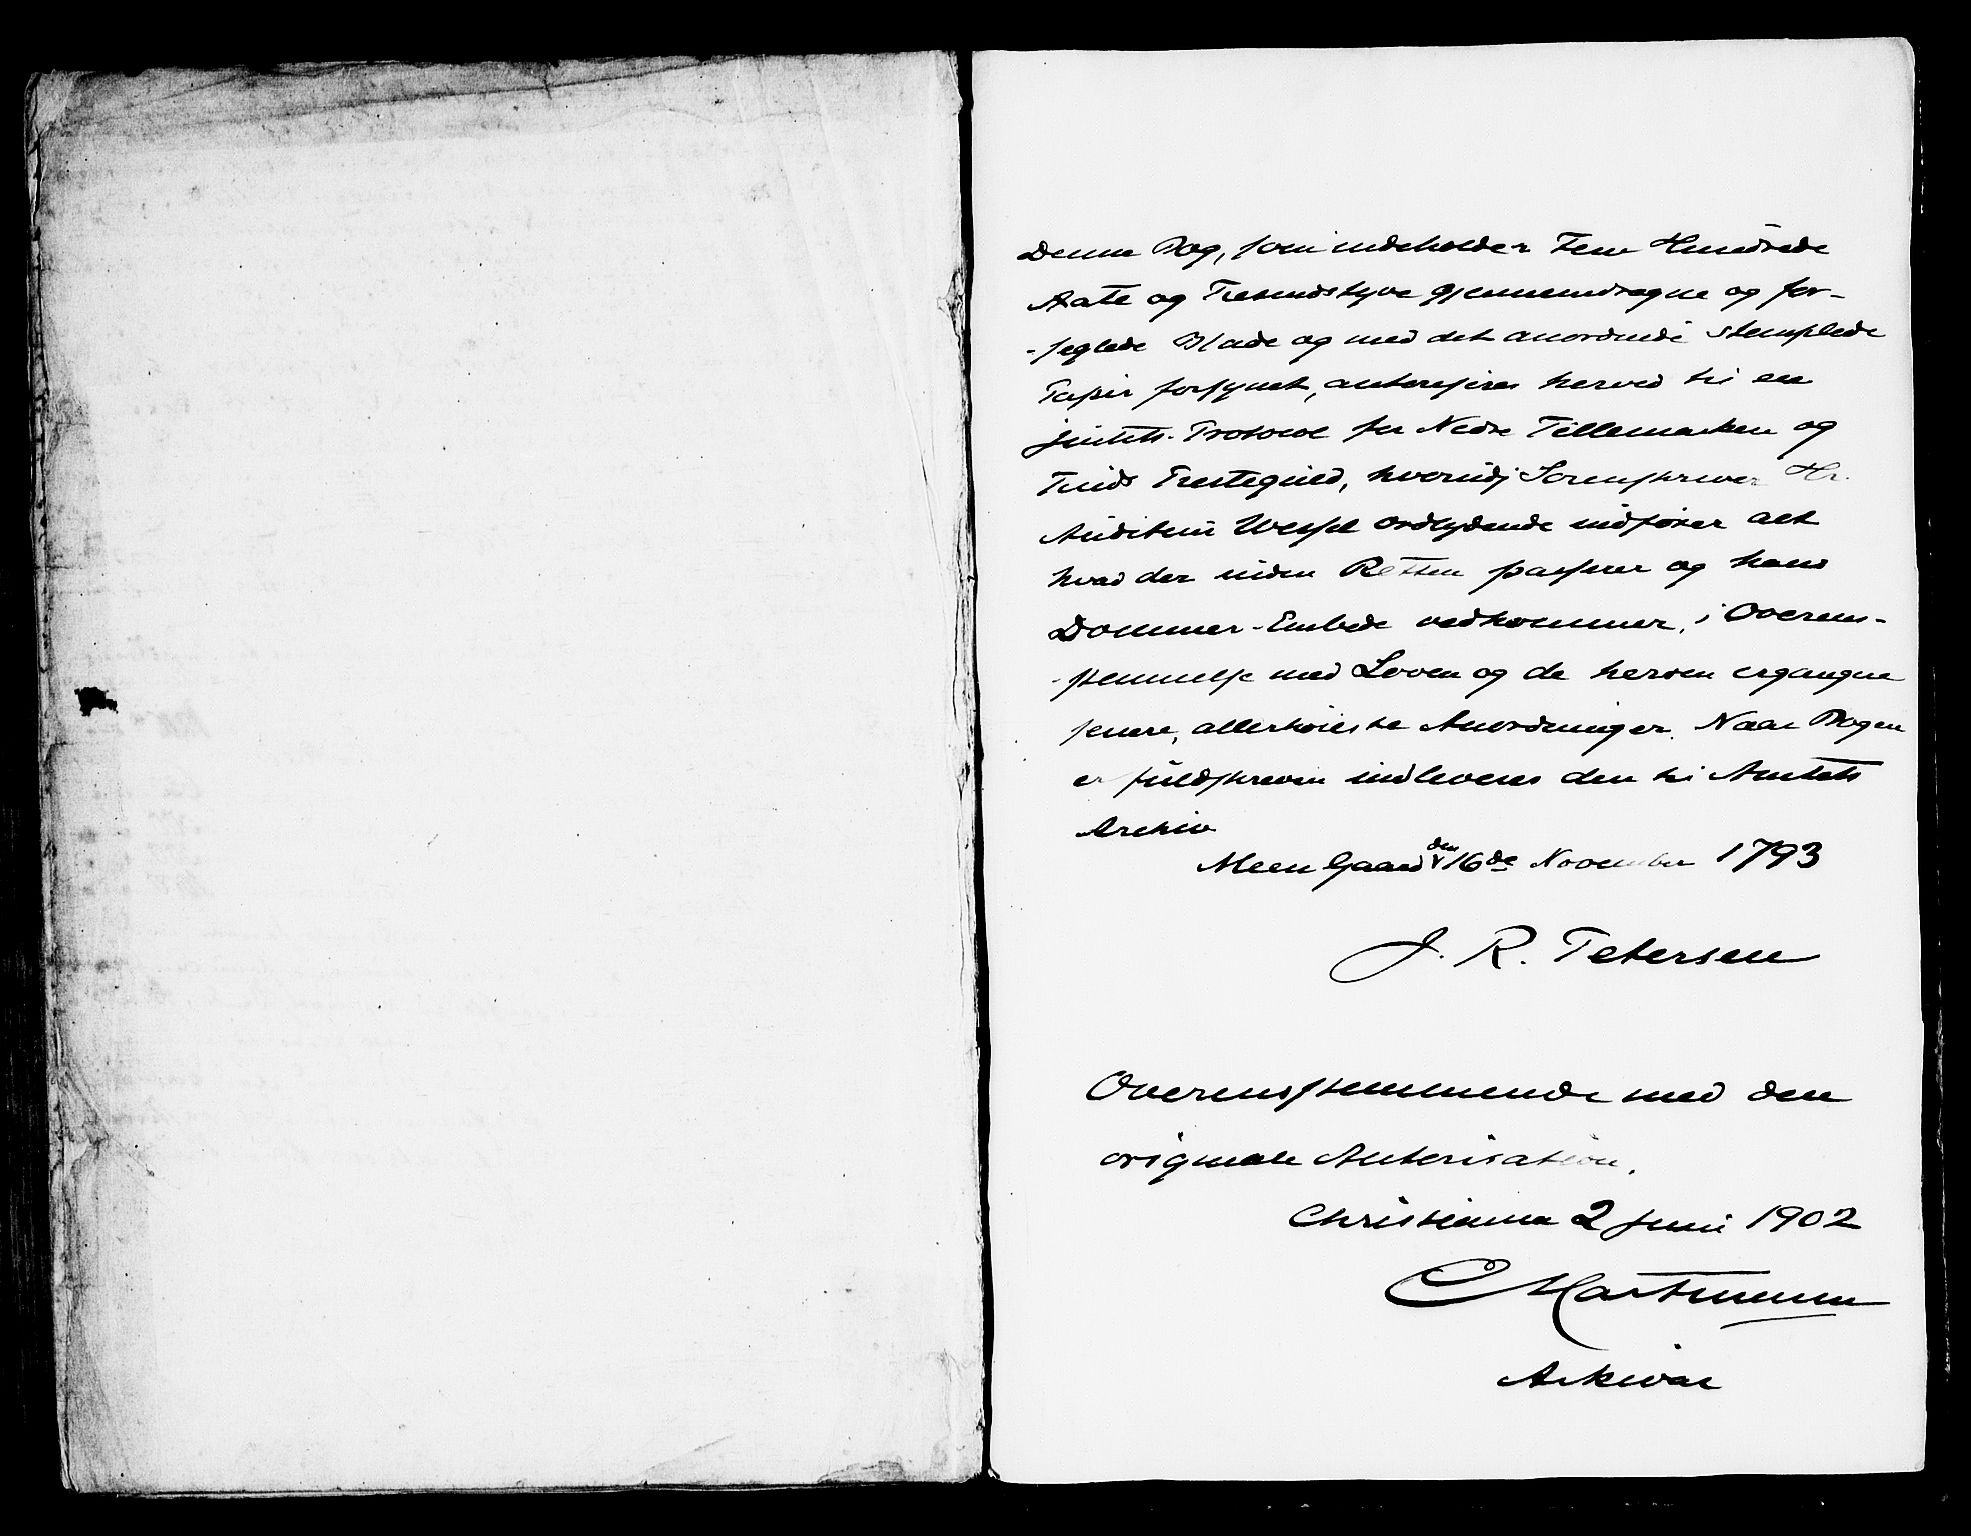 Denne Bog, som indeholder Fem Hundrede
Aate og Tresindstyve gjennemdragne og for-
-seglede Blade og med det anordnede stemplede
Papir forsynet, autoriseres herved til en
Justits-Protocol for Nedre Tellemarken og
Tinds Præstegield, hvorudj Sorenskriver Hr.
Auditeur Wessel ordlydende indfører alt
hvad der inden Retten passerer og hans
Dommer-Embede vedkommer, i Overens-
-stemmelse med Loven og de herom ergangne
senere, allerhøieste Anordninger. Naar Bogen
er fuldskreven indleveres den til Amtets
Archiv
Meen Gaard den 16de November 1793
J. R. Petersen
Overensstemmende med den
originale Autorisation.
Christiania 2 Juni 1902
Arkivar